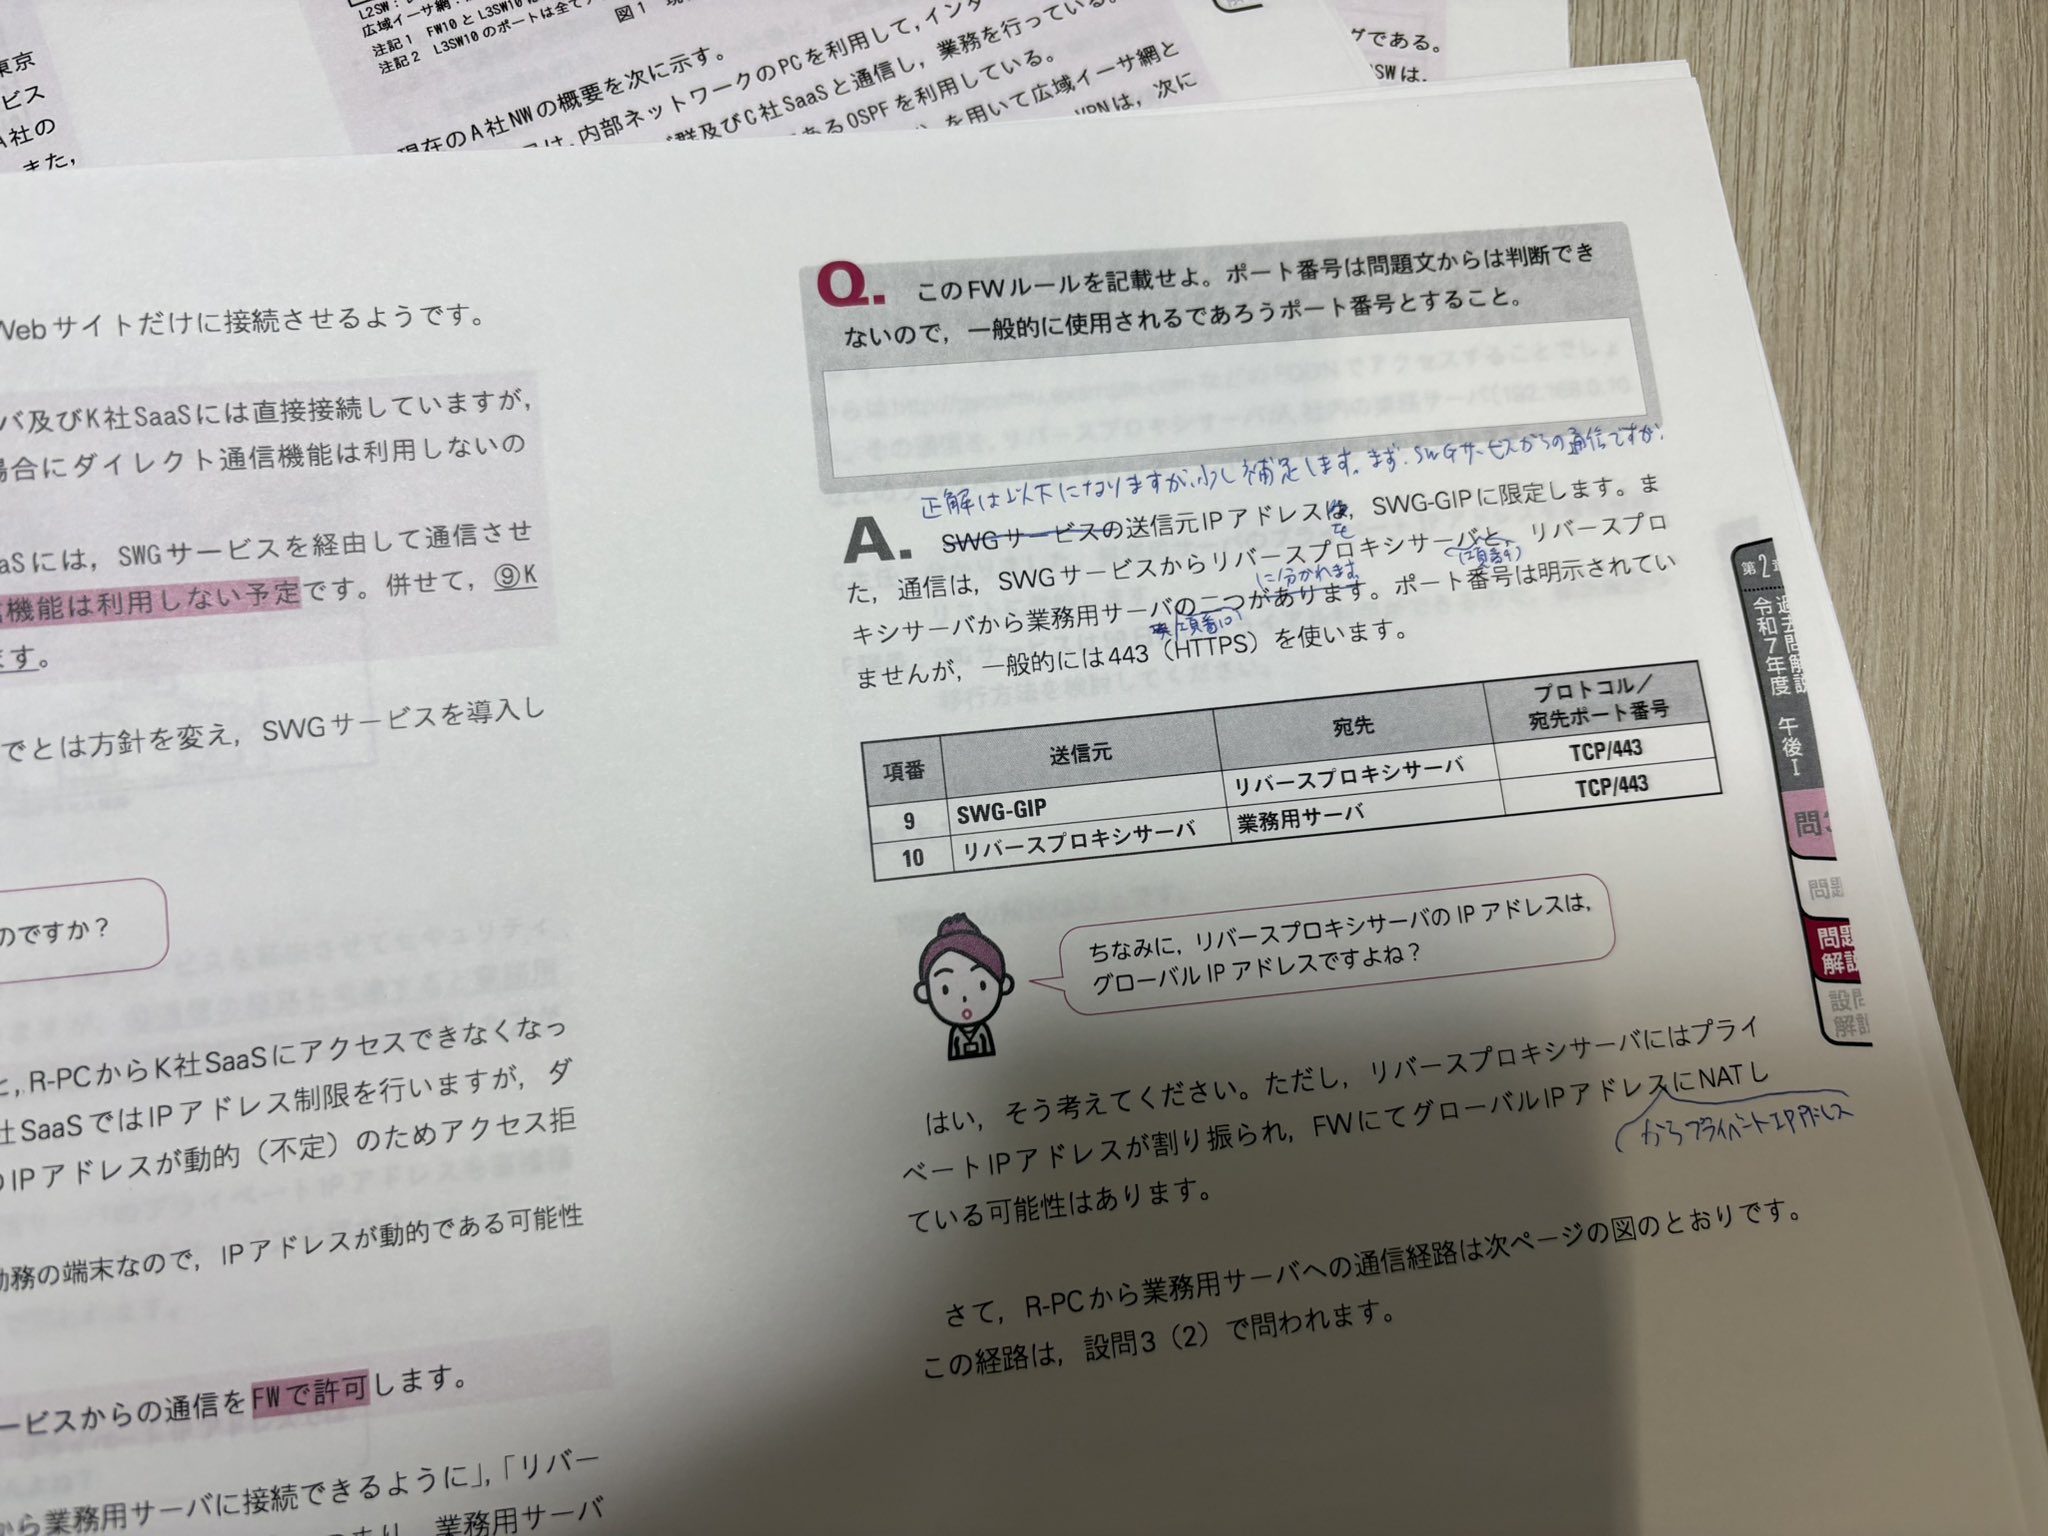 L2SW：
広域イーサ網：
注記1 FW10とL3SW10
注記2 L3SW10のポートは全て
図1 現
現在のA社NWの概要を次に示す。
は，内部ネットワークのPCを利用して，インタ
群及びC社SaaSと通信し，業務を行っている。
あるOSPFを利用している。
を用いて広域イーサ網と
VPNは，次に
グである。
SWは，
東京
ビス
A社の
また，
Webサイトだけに接続させるようです。
バ及びK社SaaSには直接接続していますが，
場合にダイレクト通信機能は利用しないの
aaSには，SWGサービスを経由して通信させ
機能は利用しない予定です。併せて，⑨K
ます。
でとは方針を変え，SWGサービスを導入し
のですか？
と，R-PCからK社SaaSにアクセスできなくなっ
社SaaSではIPアドレス制限を行いますが，ダ
のIPアドレスが動的（不定）のためアクセス拒
勤務の端末なので，IPアドレスが動的である可能性
ービスからの通信をFWで許可します。
から業務用サーバに接続できるように」，「リバー
業務用サーバ
Q. このFWルールを記載せよ。ポート番号は問題文からは判断でき
ないので，一般的に使用されるであろうポート番号とすること。
正解は以下になりますが、少し補足します。まず、SWGサービスからの通信ですが、
A. SWGサービスの送信元IPアドレスは，SWG-GIPに限定します。ま
を
た，通信は，SWGサービスからリバースプロキシサーバと，リバースプロ
(項番9)
に分かれます
キシサーバから業務用サーバの二つがあります。ポート番号は明示されてい
(項番10)
ませんが，一般的には443（HTTPS）を使います。
項番 送信元 宛先 プロトコル／宛先ポート番号
9 SWG-GIP リバースプロキシサーバ TCP/443
10 リバースプロキシサーバ 業務用サーバ TCP/443
ちなみに，リバースプロキシサーバのIPアドレスは，
グローバルIPアドレスですよね？
はい，そう考えてください。ただし，リバースプロキシサーバにはプライ
ベートIPアドレスが割り振られ，FWにてグローバルIPアドレスにNATし
からプライベートIPアドレス
ている可能性はあります。
さて，R-PCから業務用サーバへの通信経路は次ページの図のとおりです。
この経路は，設問3（2）で問われます。
第2章
過去問解説
令和7年度 午後Ⅰ
問
問題
問題
解説
設問
解説